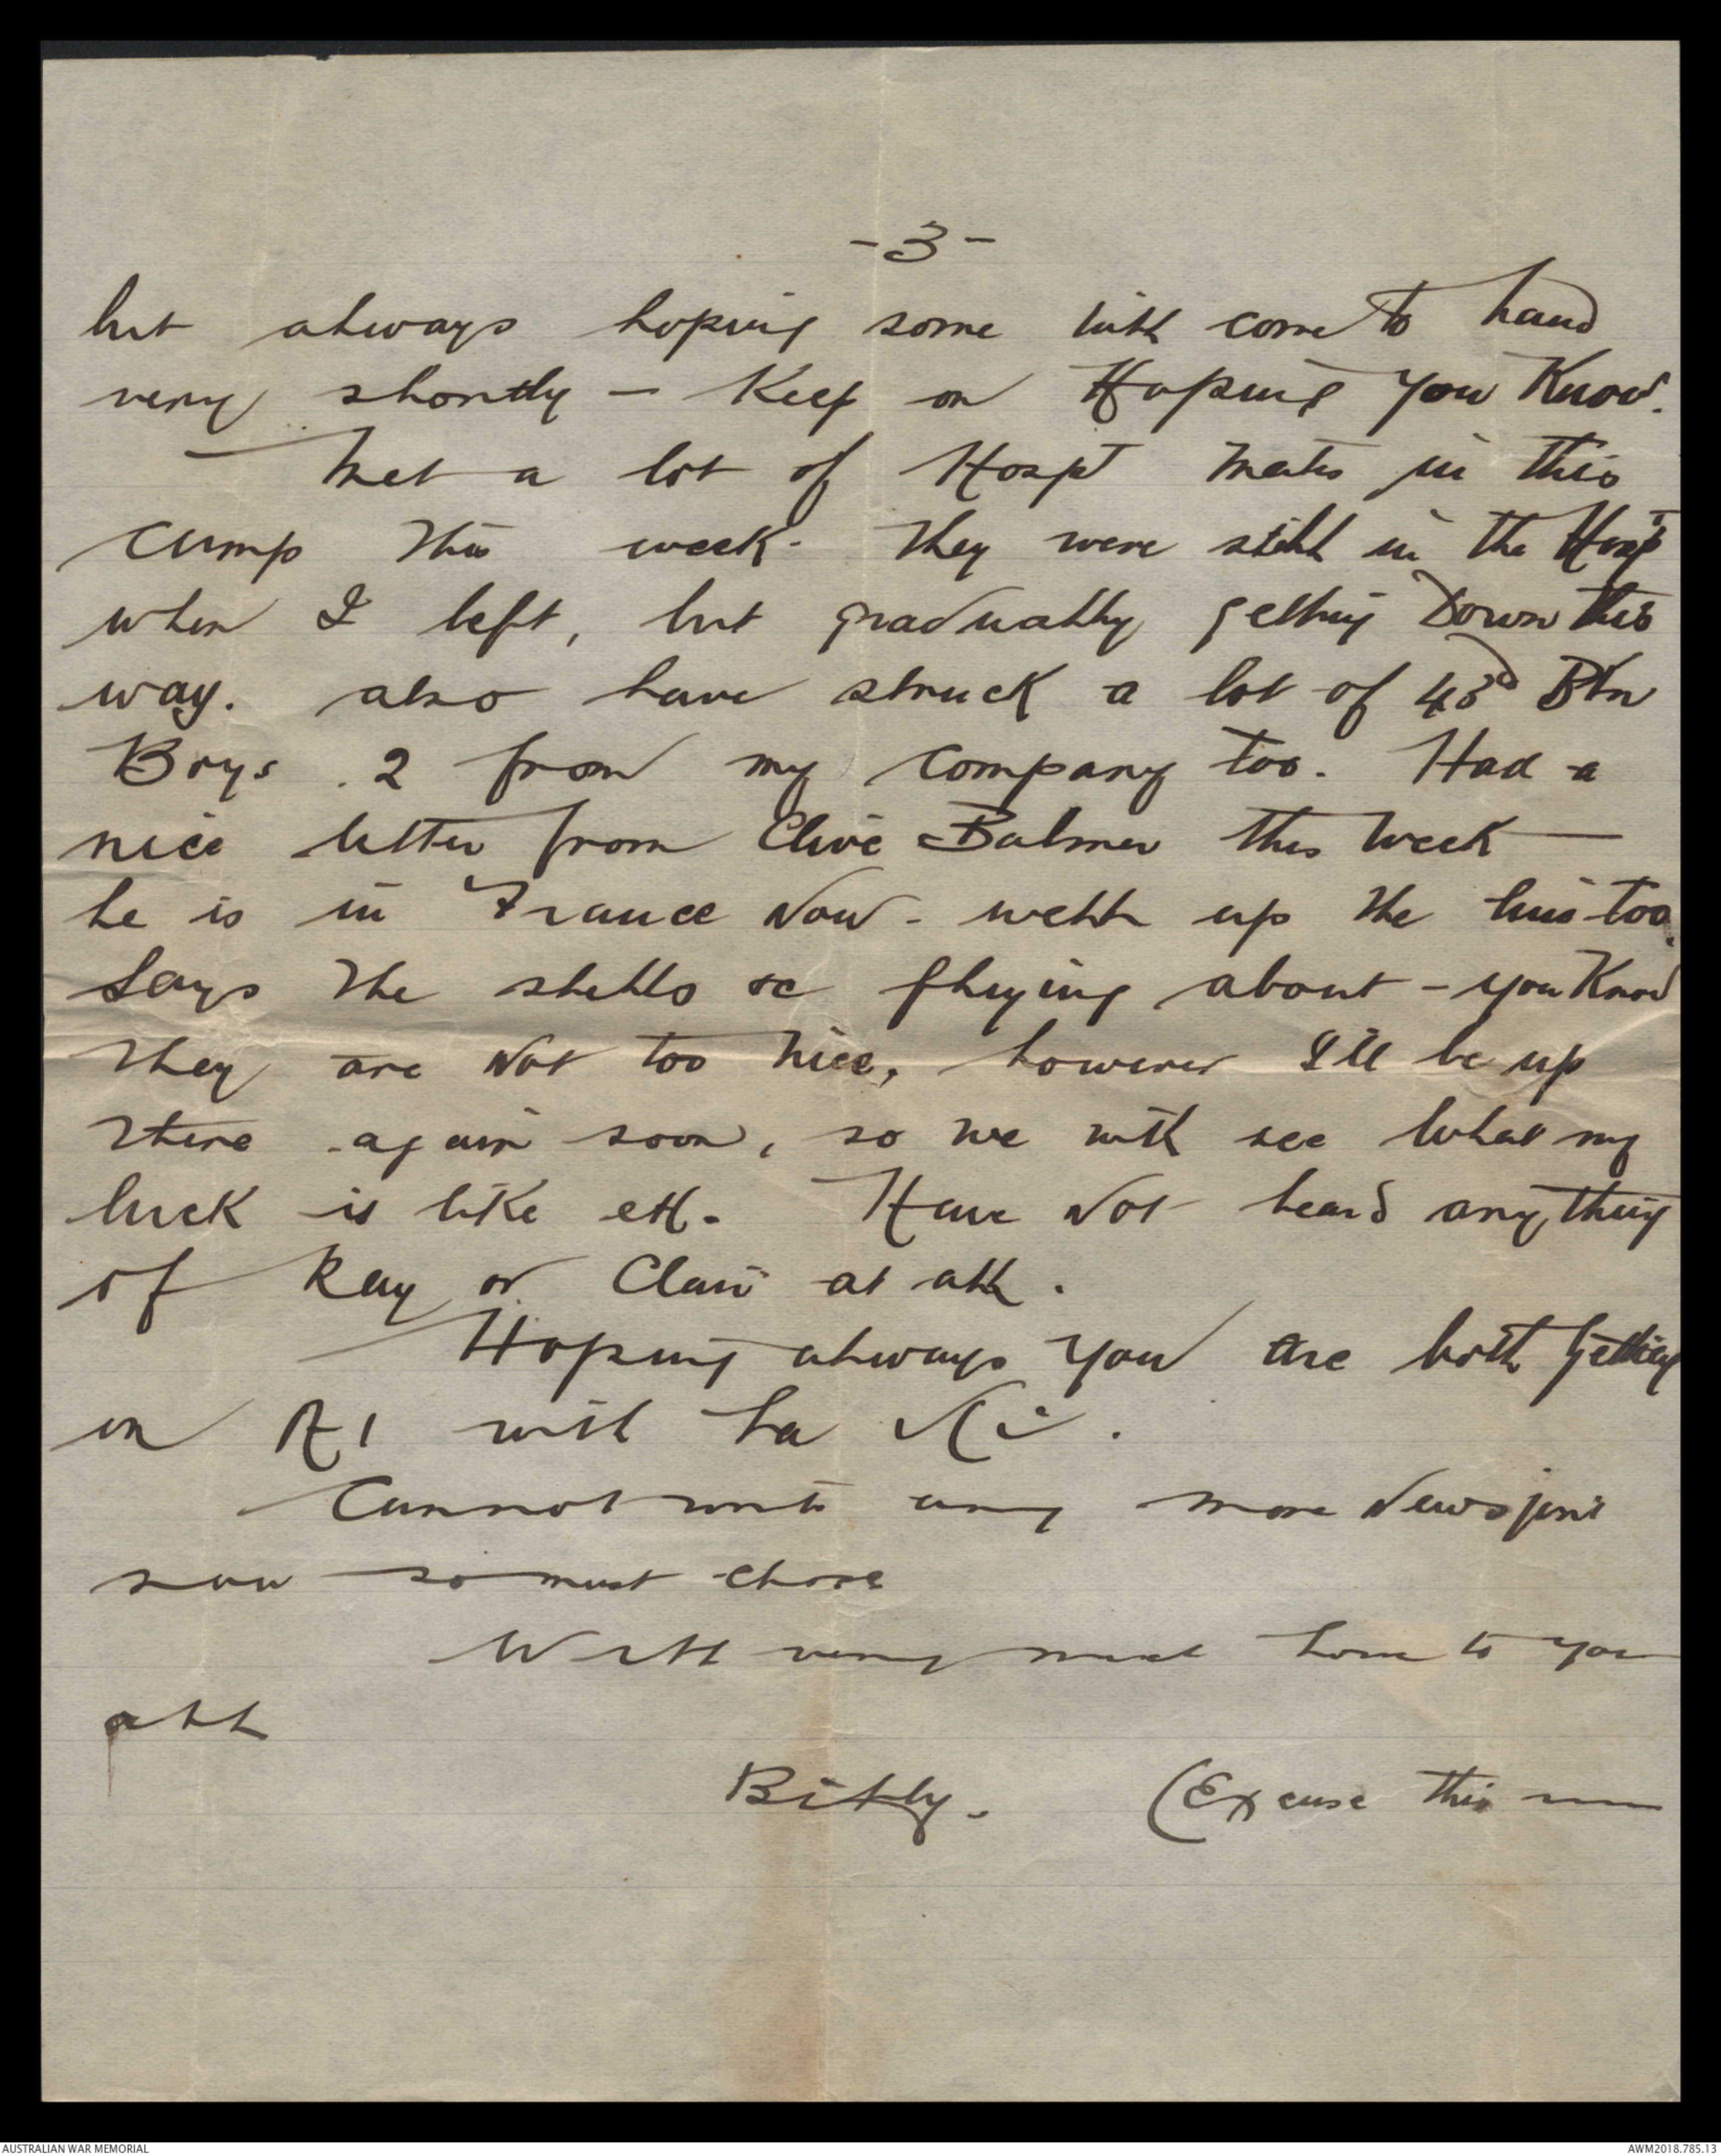 -3-
but always hoping some will come to hand
very shortly - Keep on Hoping you Know.
Met a lot of Hospt mates in this
camp this week. They were still in the Hospt
when I left, but gradually getting Down this
way. also have struck a lot of 43rd Btn
Boys. 2 from my company too. Had a
nice letter from Clive Balmer this week -
he is in France Now - well up the line too.
Says the shells &c flying about - you Know
they are Not too nice, however I'll be up
there again soon, so we will see what my
luck is like eh. Have Not heard anything
of Ray or Clair at all.
Hoping always you are both Getting
on A1 with
Cannot write any more News just
now so must close
With very much love to you
all
Billy. (Excuse this
AUSTRALIAN WAR MEMORIAL
AWM2018.785.13